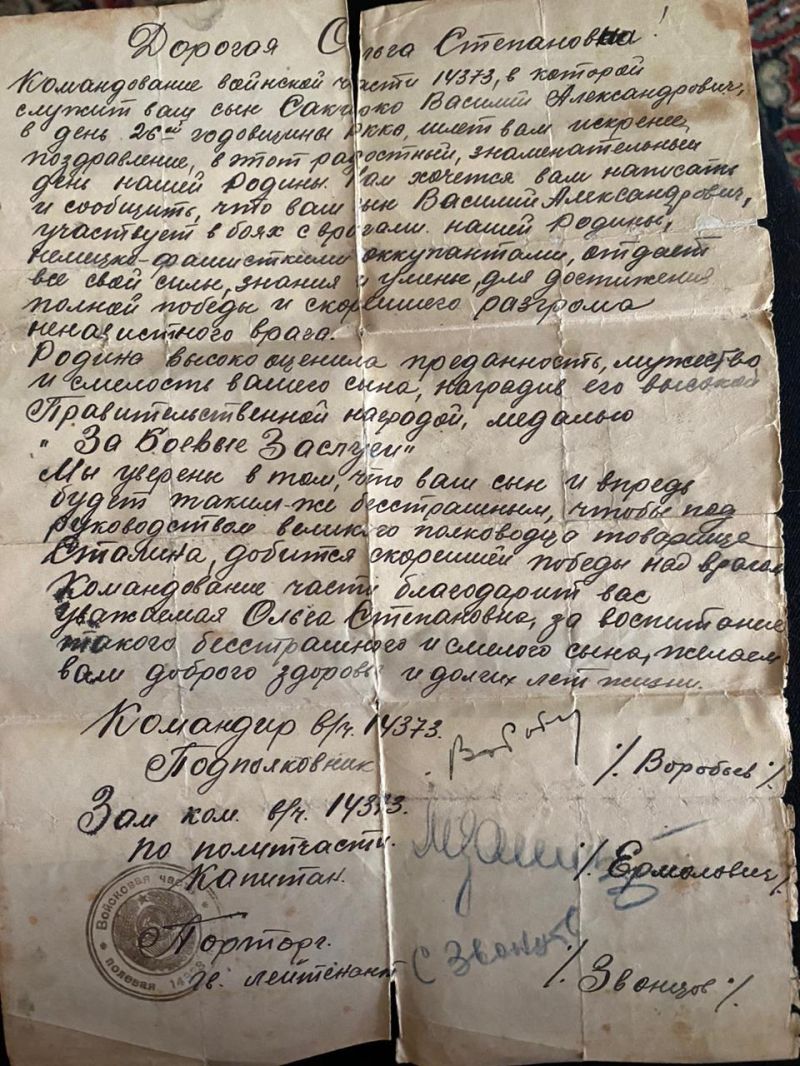 Дорогая Ольга Степановна!
Командование воинской части 14373, в которой
служит ваш сын Василий Александрович,
в день 26ой годовщины РККА, шлет вам искренее
поздравление, в этот радостный, знаменательный
день нашей Родины. Нам хочется вам написать
и сообщить, что ваш сын Василий Александрович,
участвует в боях с врагами нашей Родины,
немецко-фашисткими оккупантами, отдает
все свой силы, знания и уменье, для достижения
полной победы и скорейшего разгрома
ненавистного врага.
Родина высоко оценила преданность, мужество
и смелость вашего сына, наградив его высокой
Правительственной наградой, медалью
„За Боевые Заслуги"
Мы уверены в том, что ваш сын и впредь
будет таким-же бесстрашным, чтобы под
руководством великого полководца товарища
Сталина, добится скорейшей победы над врагом
Командование части благодарит вас
уважаемая Ольга Степановна, за воспитание
такого бесстрашного и смелого сына, желаем
вам доброго здоровья и долгих лет жизни.
Командир в/ч. 14373.
Подполковник /Воробьев/
Зам ком. в/ч. 14373.
по политчасти.
Капитан. /Ермолович/
Парторг.
гв. лейтенант С Звонцов /Звонцов/
Войсковая часть
полевая